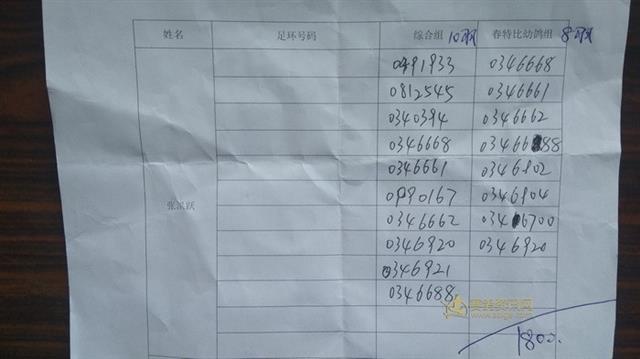 姓名 足环号码 综合组 10羽 春特比幼鸽组 8羽
0491933 0346668
0812545 0346661
0340394 0346662
0346668 0346688
0346661 0346902
0990167 0346904
张洪跃 0346662 0346700
0346920 0346920
0346921
0346688
1800.